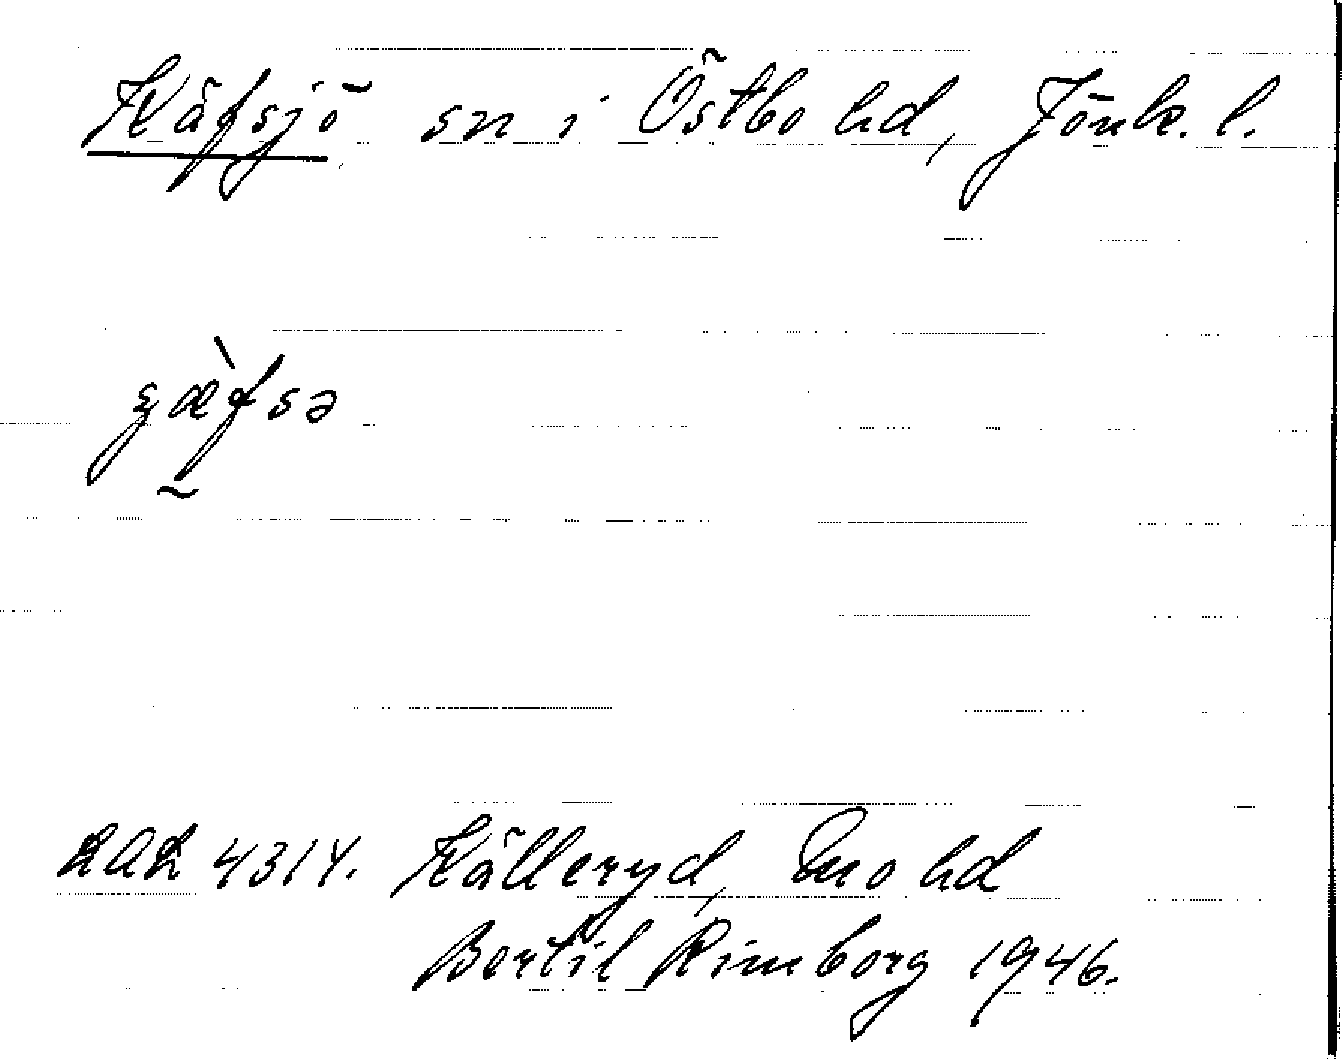 Käfsjö sn i Östbo hd, Jönk. l.
ʒæ̀fsə
LAL 4314. Källeryd, Mo hd
Bertil Rimborg 1946.